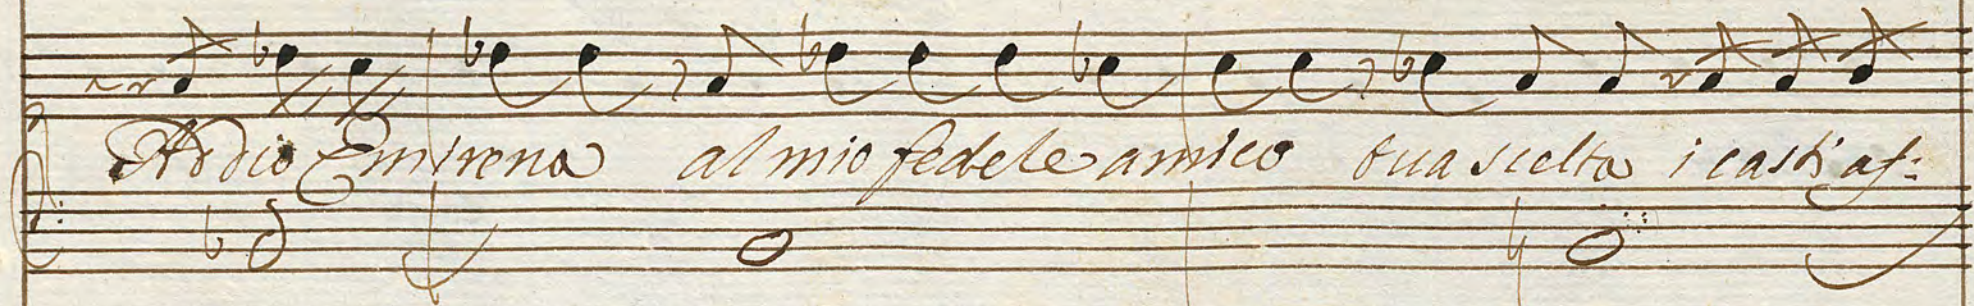 Addio Emirena al mio fedele amico tua scelta i casti af: